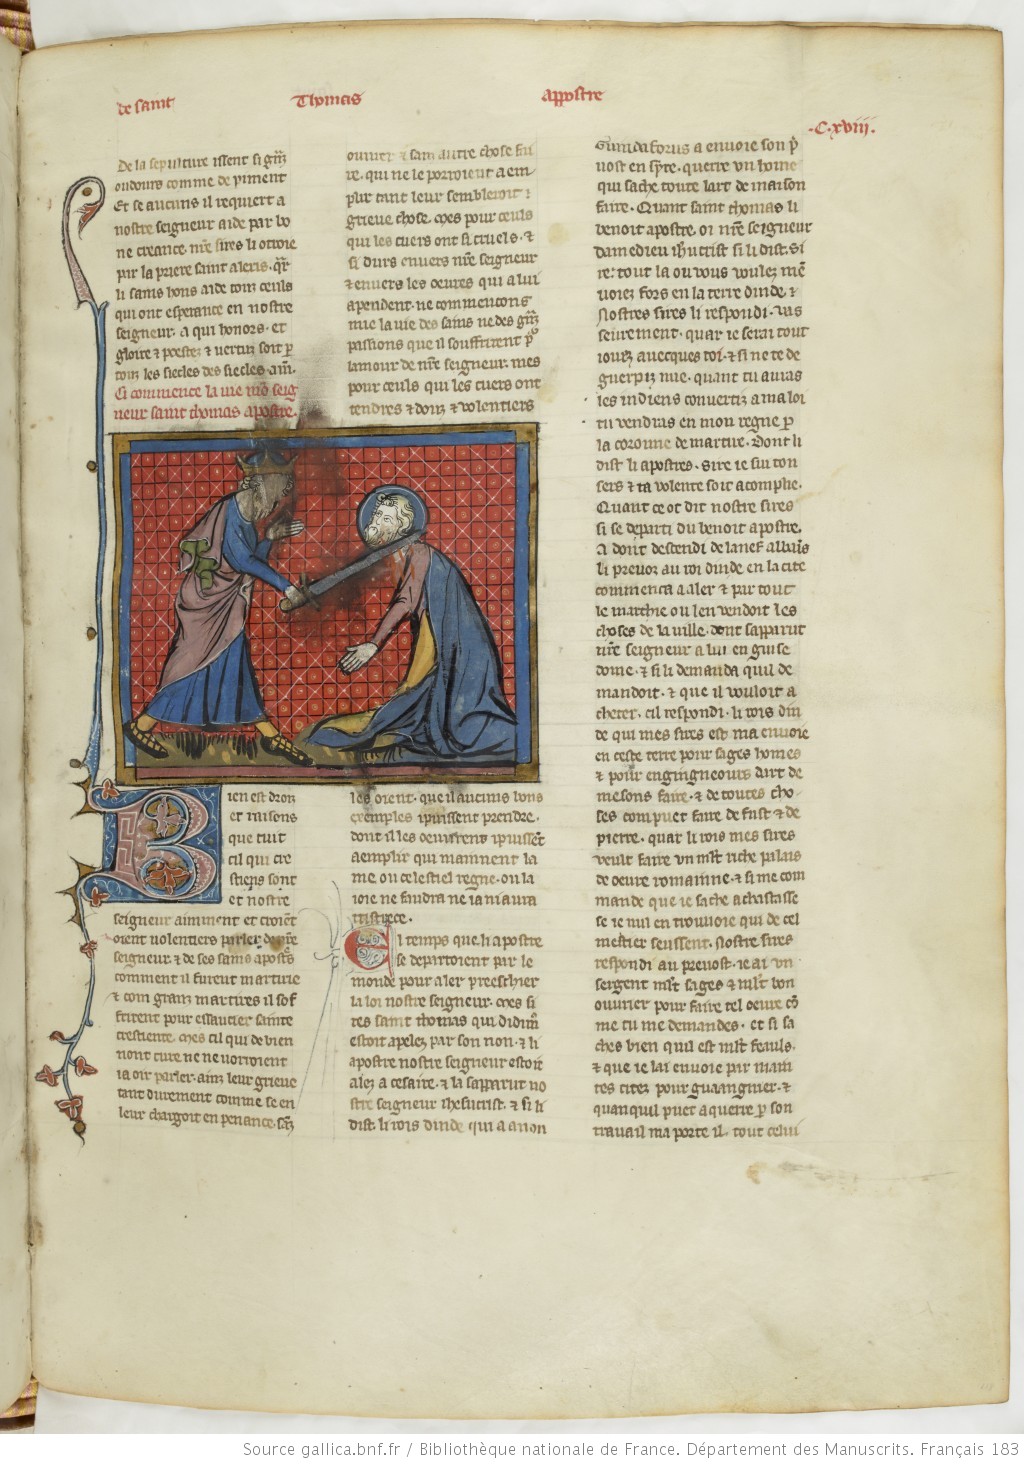 de saint Thomas appostre
.C.xviii.
De la sepulture issent si grãz
oudours comme de piment
Et se aucuns il requiert a
nostre seigneur aide par bo
ne creance. nr̃e sires li otroie
par la priere saint alexis. q̃r
li sains hons aide touz ceuls
qui ont esperance en nostre
seigneur. a qui honors. et
gloire ⁊ poestez ⁊ vertuz soit p̱
touz les siecles des siecles. am̃.
Ci commence la vie mõ seig
neur saint thomas apostre.
Bien est droiz
et raisons
que tuit
cil qui cre
stiens sont
et nostre
seigneur aimment et croiẽt
oient uolentiers parler de nr̃e
seigneur ⁊ de ses sains apostr̃s
comment il furent martirie
⁊ com granz martires il sof
frirent pour essaucier sainte
crestiente. mes cil qui de bien
nont cure ne ne uorroient
ia oir parler. ainz leur grieue
tant durement comme se en
leur chargoit en penance. sãz
ouurer ⁊ sanz autre chose fai
re. qui ne le porroient aem
plir tant leur sembleroit
grieue chose. mes pour ceuls
qui les cuers ont si cruels. ⁊
si durs enuers nr̃e seigneur
⁊ enuers les oeures qui a lui
apendent. ne commencons
mie la vie des sains ne des grãz
passions que il souffrirent p̱
lamour de nr̃e seigneur. mes
pour ceuls qui les cuers ont
tendres ⁊ douz ⁊ volentiers
les oient. que il aucuns bons
exemples i puissent prendre.
dont il les oeuures i puissẽt
aemplir qui mainnent la
me ou celestiel regne. ou la
ioie ne faudra ne ia ni aura
tristrece.
El temps que li apostre
se departoient par le
monde pour aler preeschier
la loi nostre seigneur. mes si
res saint thomas qui didim9
estoit apelez par son non. ⁊ li
apostre nostre seigneur estoit
alez a cesaire. ⁊ la sapparut no
stre seigneur ihesucrist. ⁊ si li
dist. li rois dinde qui a a non
Gundaforus a enuoie son p̱
uost en sẏre. querre vn home
qui sache toute lart de maison
faire. Quant saint thomas li
benoit apostre. oi nr̃e seigneur
damedieu ih̃ucrist si li dist. Si
re. tout la ou vous voulez mẽ
uoiez fors en la terre dinde. ⁊
Nostres sires li respondi. vas
seurement. quar ie serai tout
iourz auecques toi. ⁊ si ne te de
guerpiz mie. quant tu auras
les indiens conuertiz a ma loi
tu vendras en mon regne p̱
la coronne de martire. Dont li
dist li apostres. Sire ie sui ton
sers ⁊ ta volente soit acomplie.
Quant ce ot dit nostre sires
si se departi du benoit apostre.
A dont descendi de la nef albãs
li preuoz au roi dinde en la cite
commenca a aler ⁊ par tout
le marchie ou len vendoit les
choses de la ville. dont sapparut
nr̃e seigneur a lui en guise
dome. ⁊ si li demanda quil de
mandoit. ⁊ que il vouloit a
cheter. cil respondi. li rois din
de qui mes sires est ma enuoie
en ceste terre pour sages homes
⁊ pour engingneours dart de
mesons faire. ⁊ de toutes cho
ses com puet faire de fust ⁊ de
pierre. quar li rois mes sires
veult faire vn ml̃t riche palais
de oeure romainne. ⁊ si me com
mande que ie sache achastasse
se ie nul en trouuoie qui de cel
mestier seussent. Nostre sires
respondi au preuost. ie ai vn
sergent ml̃t sages ⁊ ml̃t bon
ouurier pour faire tel oeure cõ
me tu me demandes. et si sa
ches bien quil est ml̃t feauls.
⁊ que ie lai enuoie par main
tes citez pour guaangnier. ⁊
quanquil puet aquerre p̱ son
trauail ma porte il. tout celui
Source gallica.bnf.fr / Bibliothèque nationale de France. Département des Manuscrits. Français 183